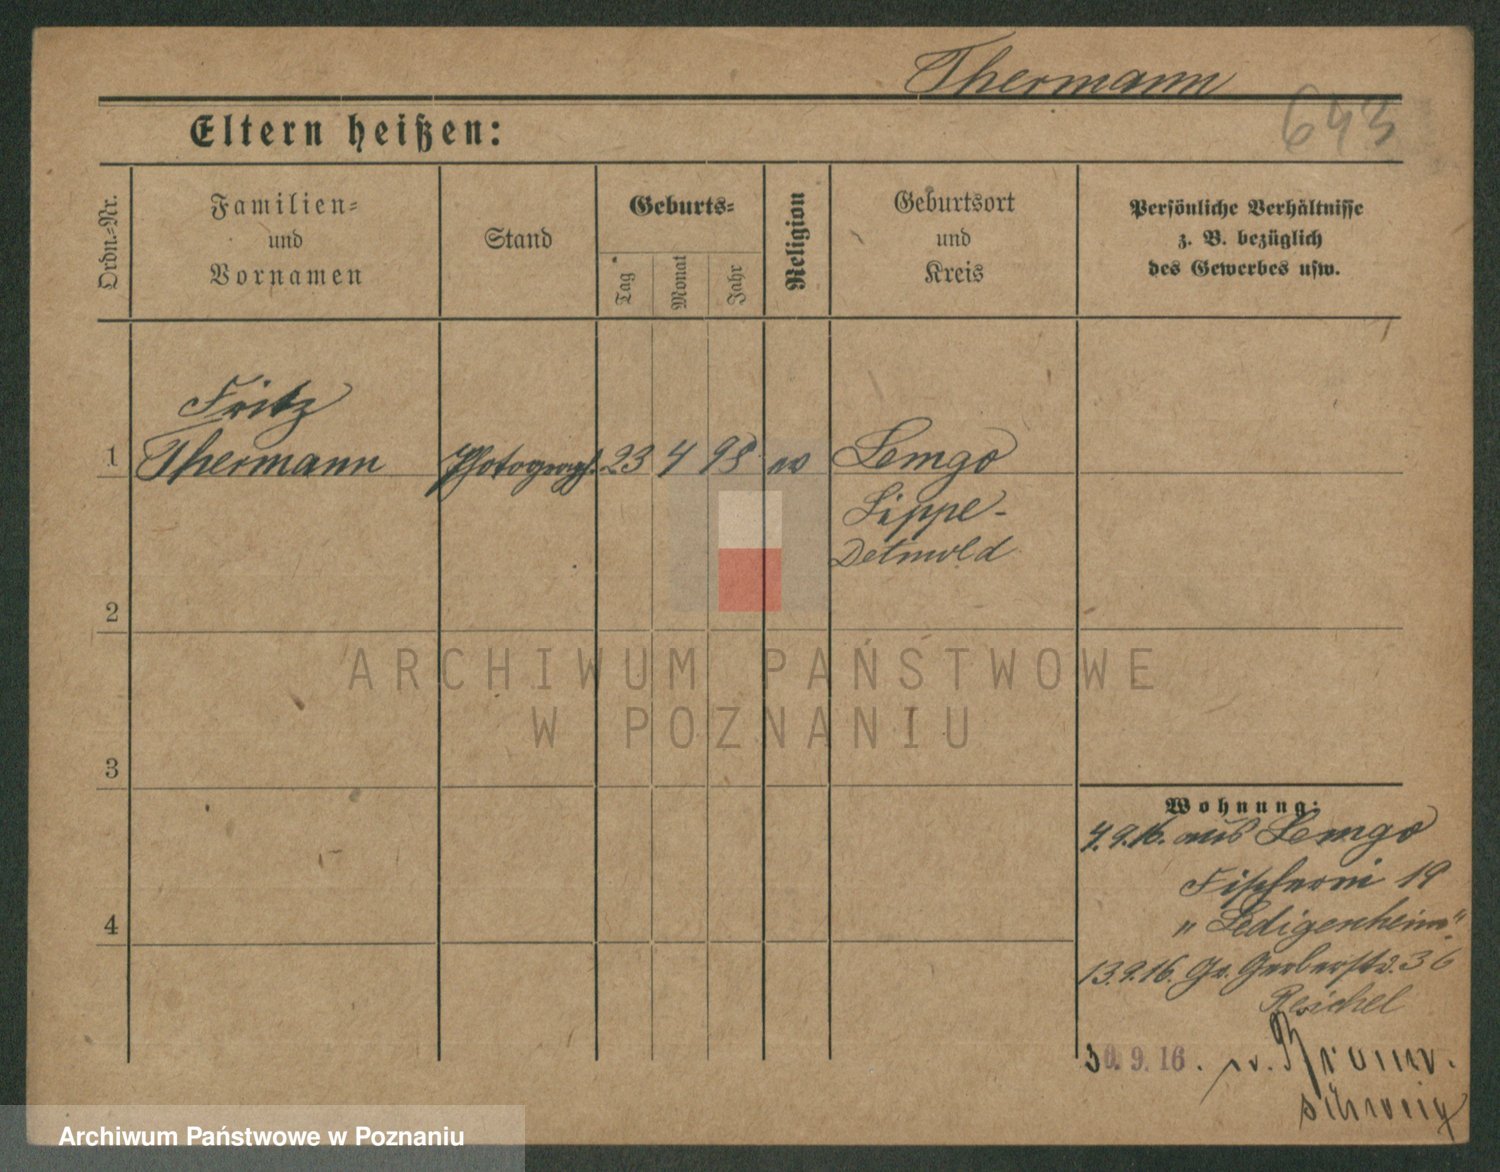 Thermann
643
Eltern heißen:
Ordn.-Nr.
Familien-
und
Vornamen
Stand
Geburts-
Tag
Monat
Jahr
Religion
Geburtsort
und
Kreis
Persönliche Verhältnisse
z. B. bezüglich
des Gewerbes usw.
Fritz
1 Thermann Photograph. 23 4 98 ev Lemgo
Lippe-
Detmold
2
ARCHIWUM PAŃSTWOWE
W POZNANIU
3
Wohnung:
4.9.16. aus Lemgo
Fischerei 19
"Ledigenheim"
4
13.9.16. Gr. Gerberstr. 36
Reichel
30.9.16. n. Braun-
schweig
Archiwum Państwowe w Poznaniu